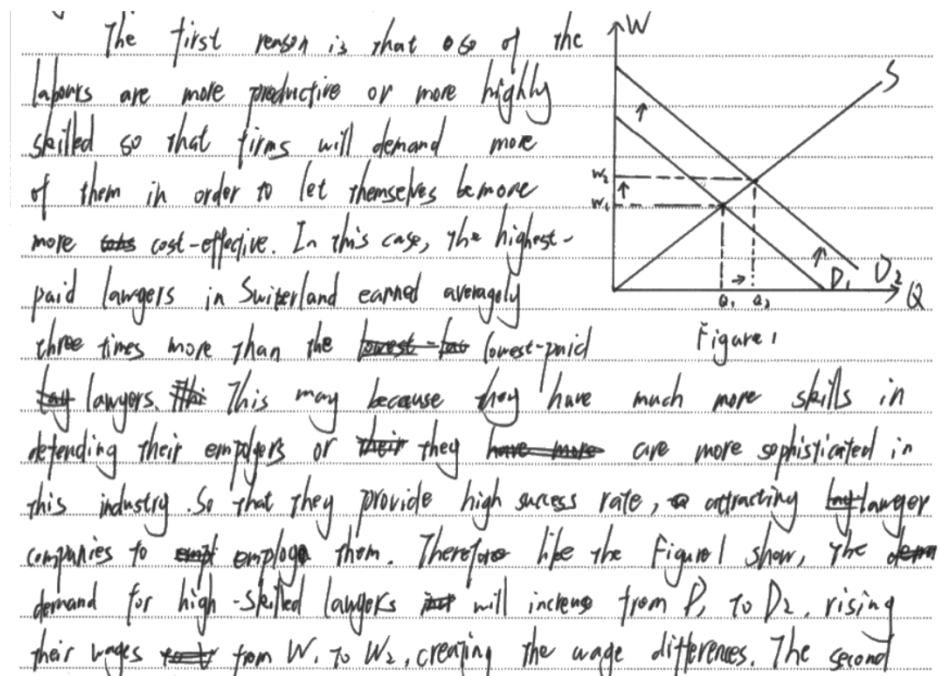 The first reason is that of the
labours are more productive or more highly
skilled so that firms will demand more
of them in order to let themselves be more
more cost-effective. In this case, the highest-
paid lawyers in Switerland earned averagely
three times more than the lowest-paid
lawyers. This may because they have much more skills in
defending their employers or they are more sophisticated in
this industry. So that they provide high success rate, attracting lawyer
companies to employ them. Therefore like the Figure 1 show, the
demand for high-skilled lawyers will increase from D1 to D2, rising
their wages from W1 to W2, creating the wage differences. The second
W
S
W2
W1
D1
D2
Q1
Q2
Q
Figure 1